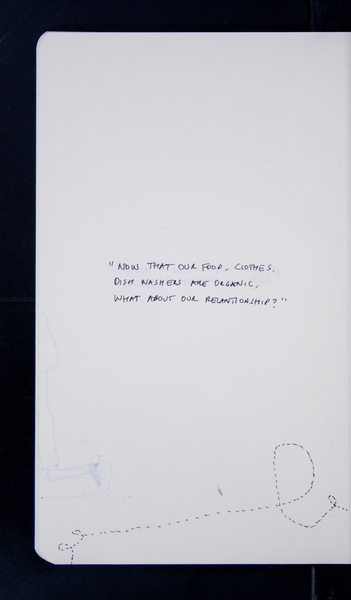 "NOW THAT OUR FOOD, CLOTHES,
DISH WASHERS ARE ORGANIC,
WHAT ABOUT OUR RELANTIONSHIP?"